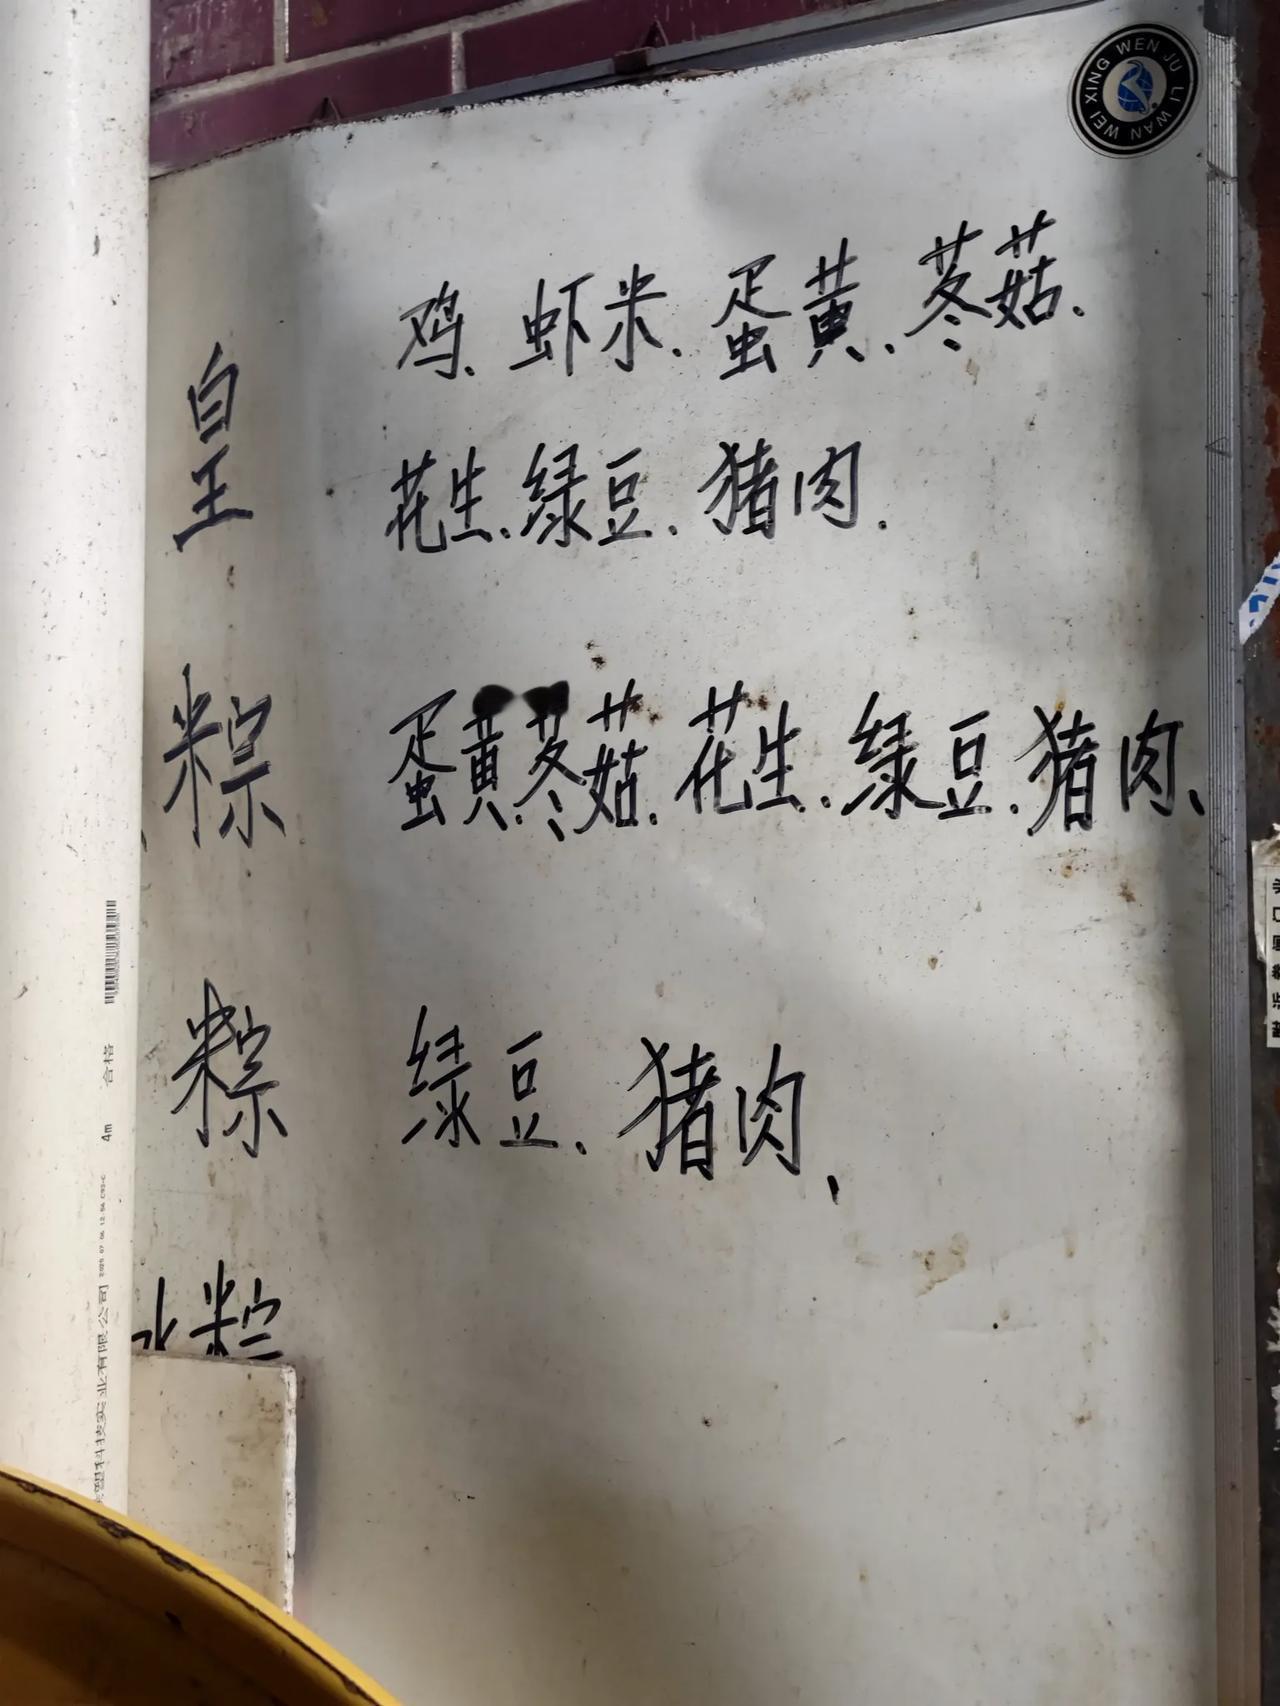 WEI XING WEN JU LI WAN
鸡、虾米、蛋黄、苳菇、
皇 花生、绿豆、猪肉、
粽 蛋黄、苳菇、花生、绿豆、猪肉、
粽 绿豆、猪肉、
粽
合格
4m
塑科技实业有限公司